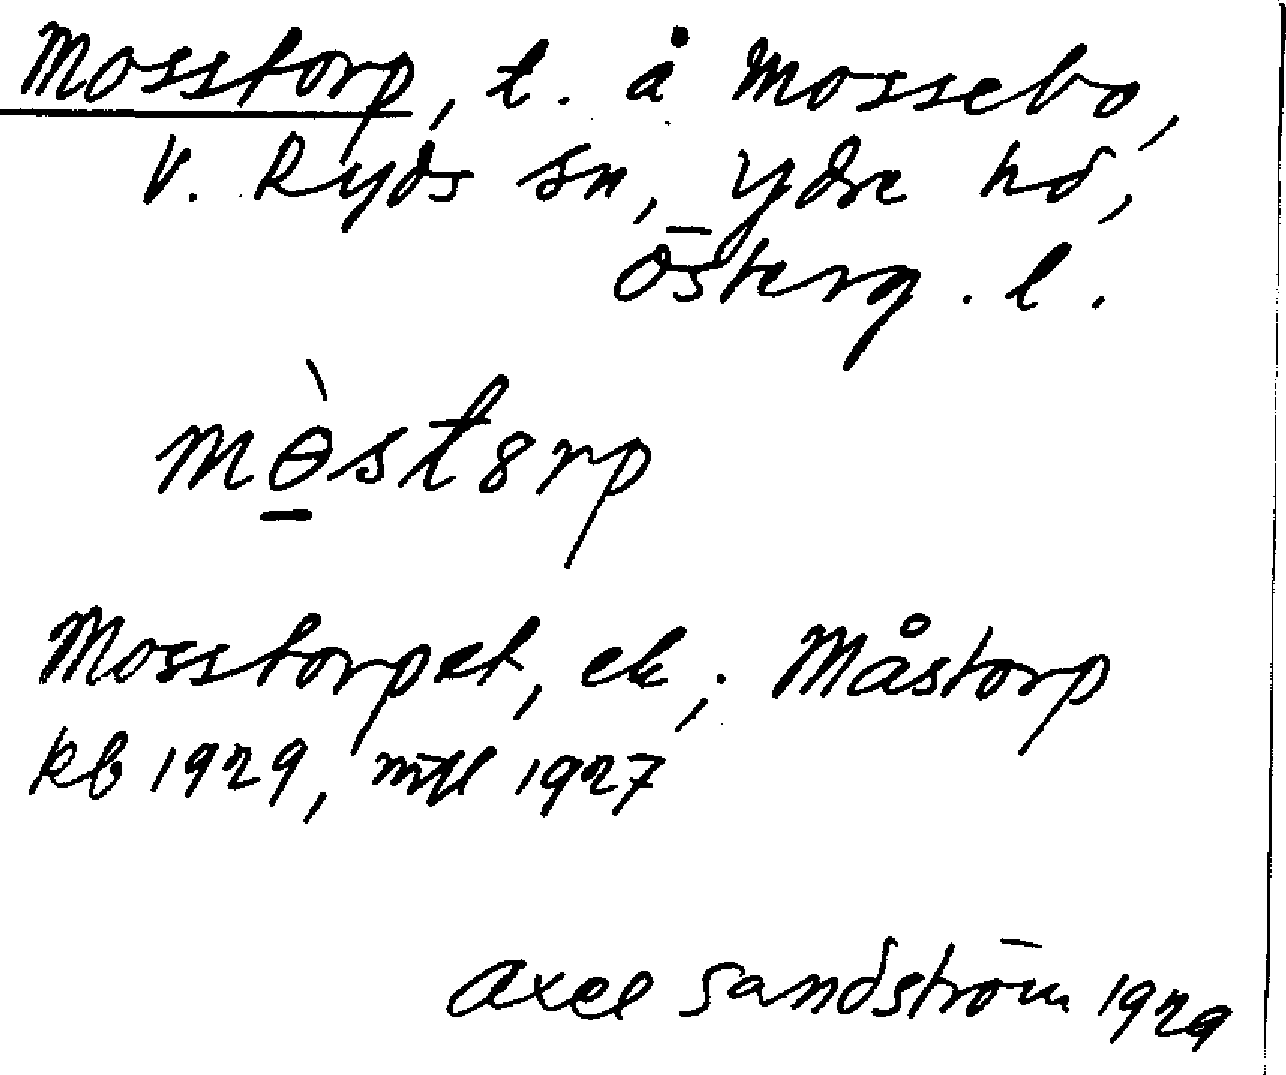 Mosstorp, t. å Mossebo,
V. Ryds sn, Ydre hd,
Österg. l.
mɵ̱̀stȣrp
Mosstorpet, ek; Måstorp
kb 1929, mtl 1927
Axel Sandström 1929